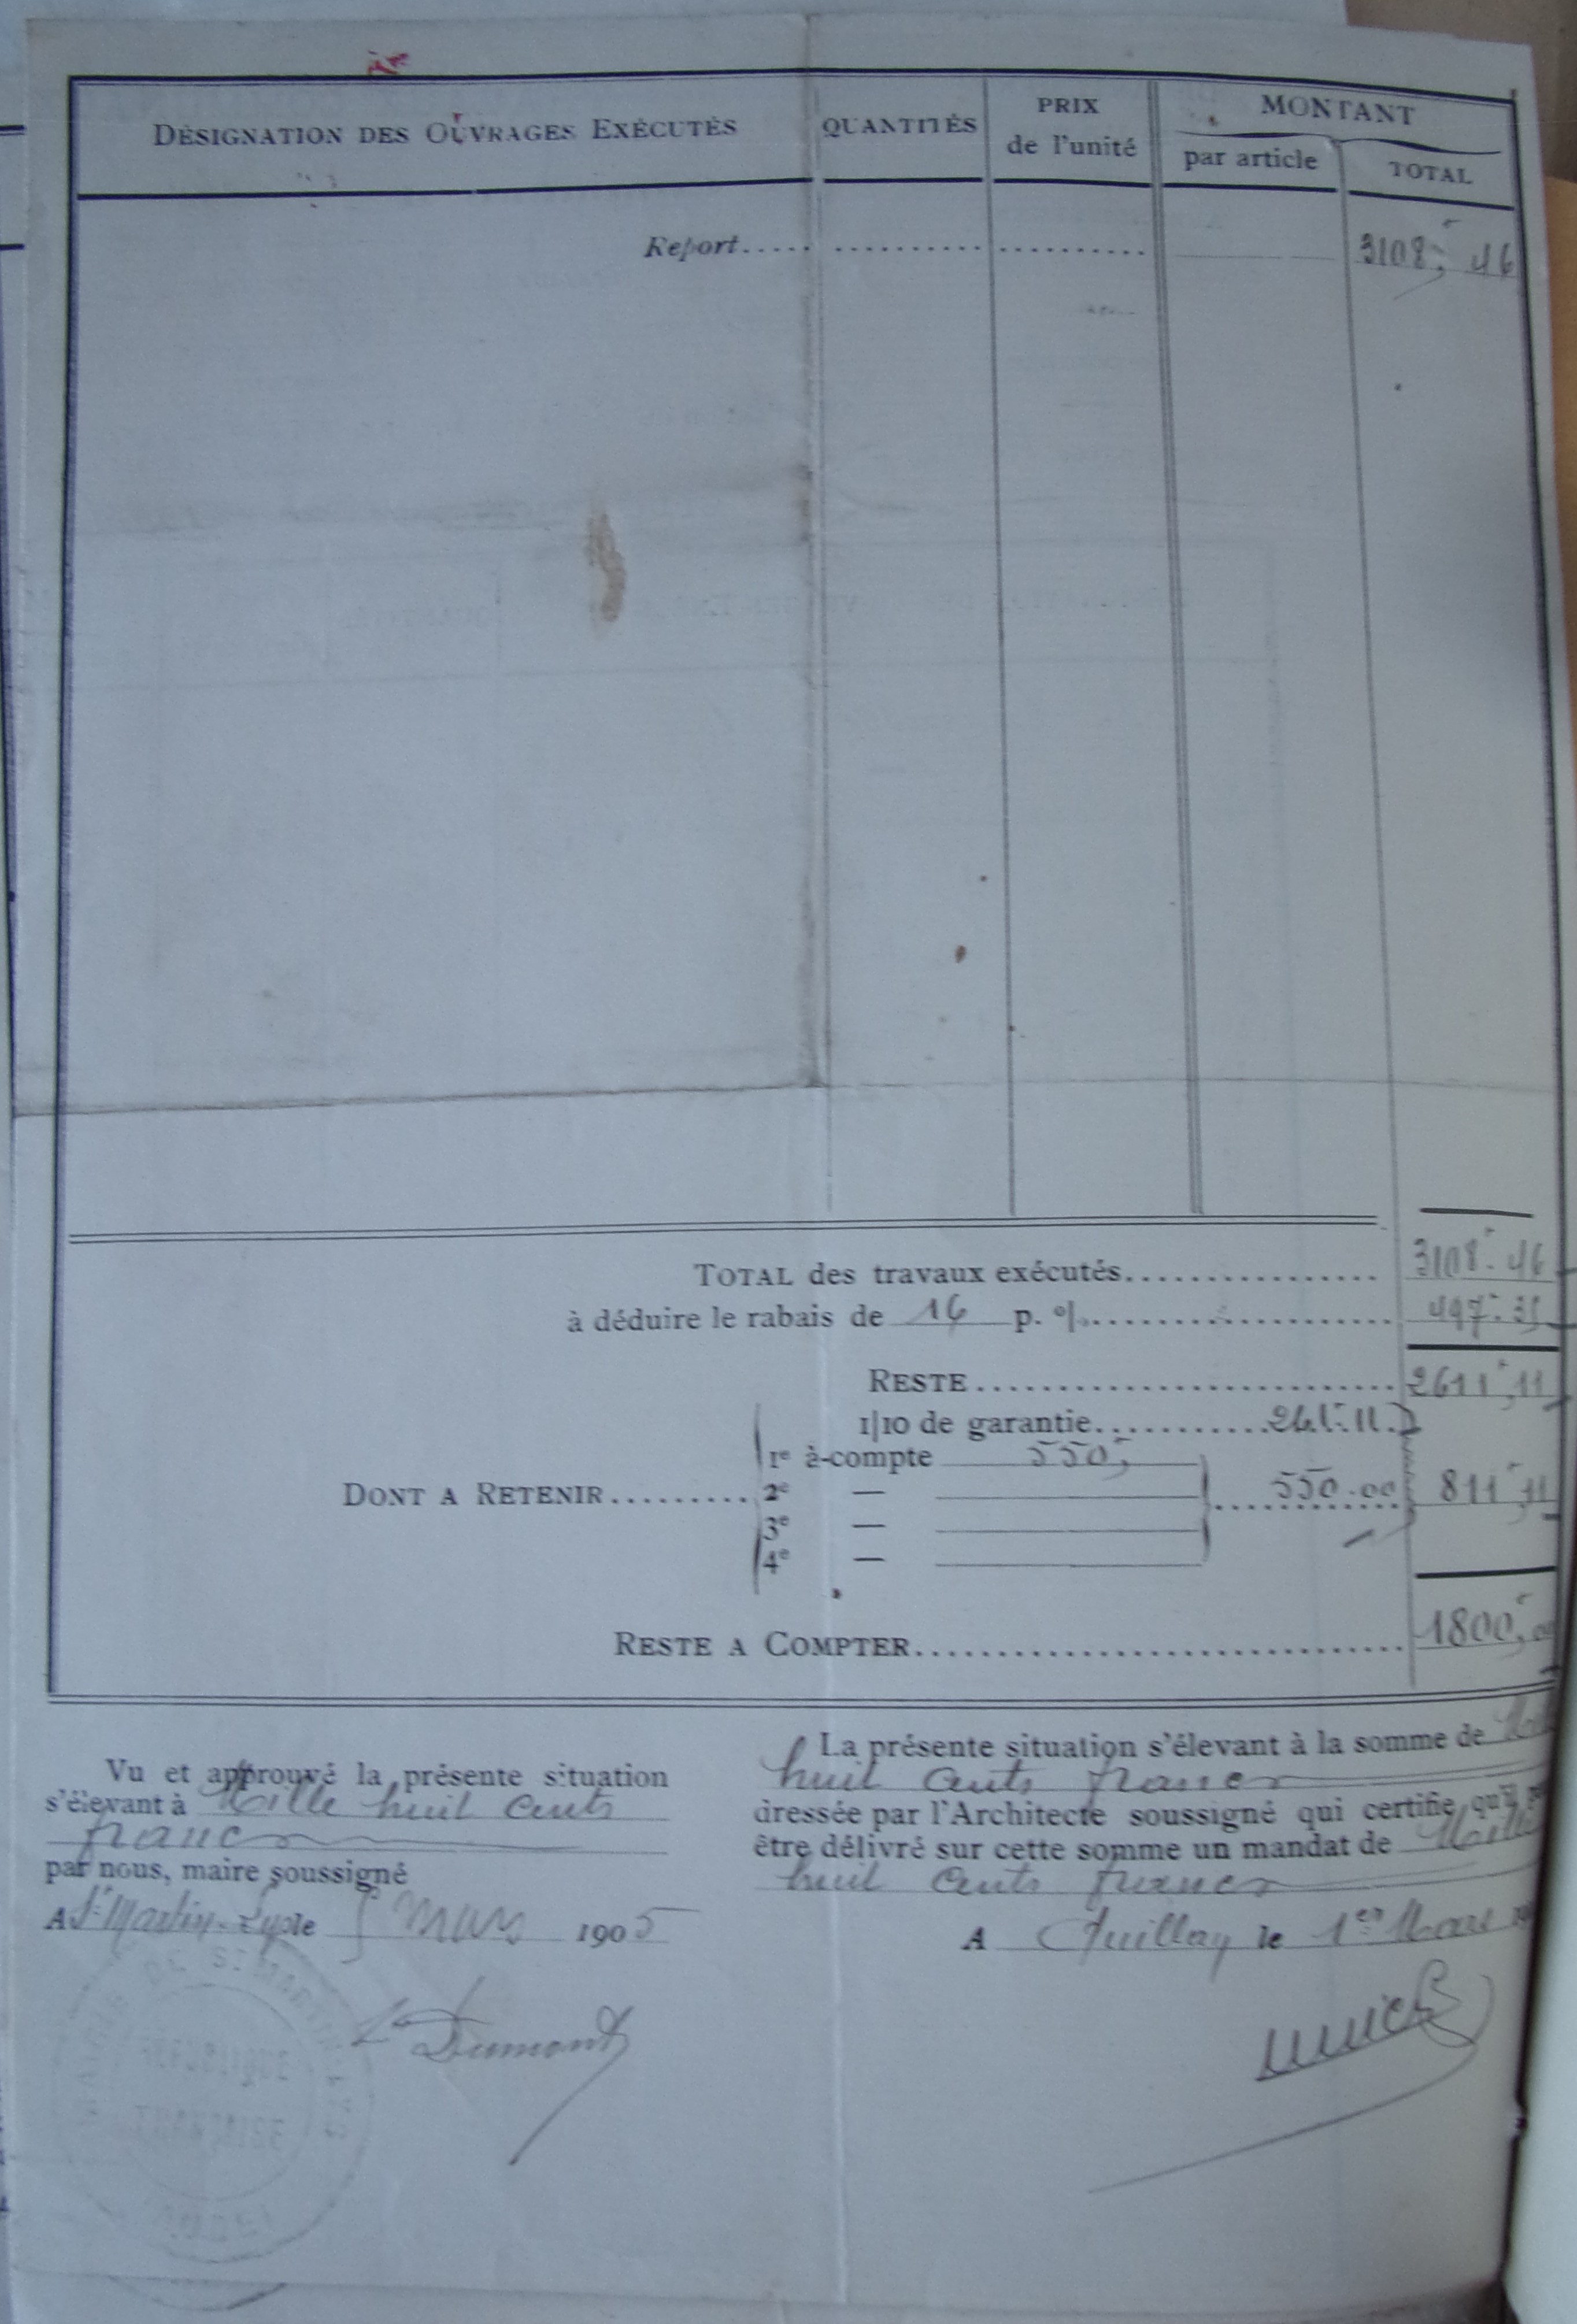 DÉSIGNATION DES OUVRAGES EXÉCUTÉS QUANTITÉS PRIX de l'unité MONTANT par article TOTAL
Report 3108, 46
TOTAL des travaux exécutés 3108. 46
à déduire le rabais de 16 p. % 497. 35
RESTE 2611, 11
1/10 de garantie 261. 11
1e à-compte 550,
DONT A RETENIR 2e — 550.00 811, 11
3e —
4e —
RESTE A COMPTER 1800, 00
Vu et approuvé la présente situation
s'élevant à Mille huit cents
francs
par nous, maire soussigné
A St Martin-Lys le mars 1905
L. Dumont
La présente situation s'élevant à la somme de
huit cents francs
dressée par l'Architecte soussigné qui certifie qu'il
être délivré sur cette somme un mandat de Mille
huit cents francs
A Quillan le 1er Mars
MAIRIE DE St MARTIN-LYS
RÉPUBLIQUE
FRANÇAISE